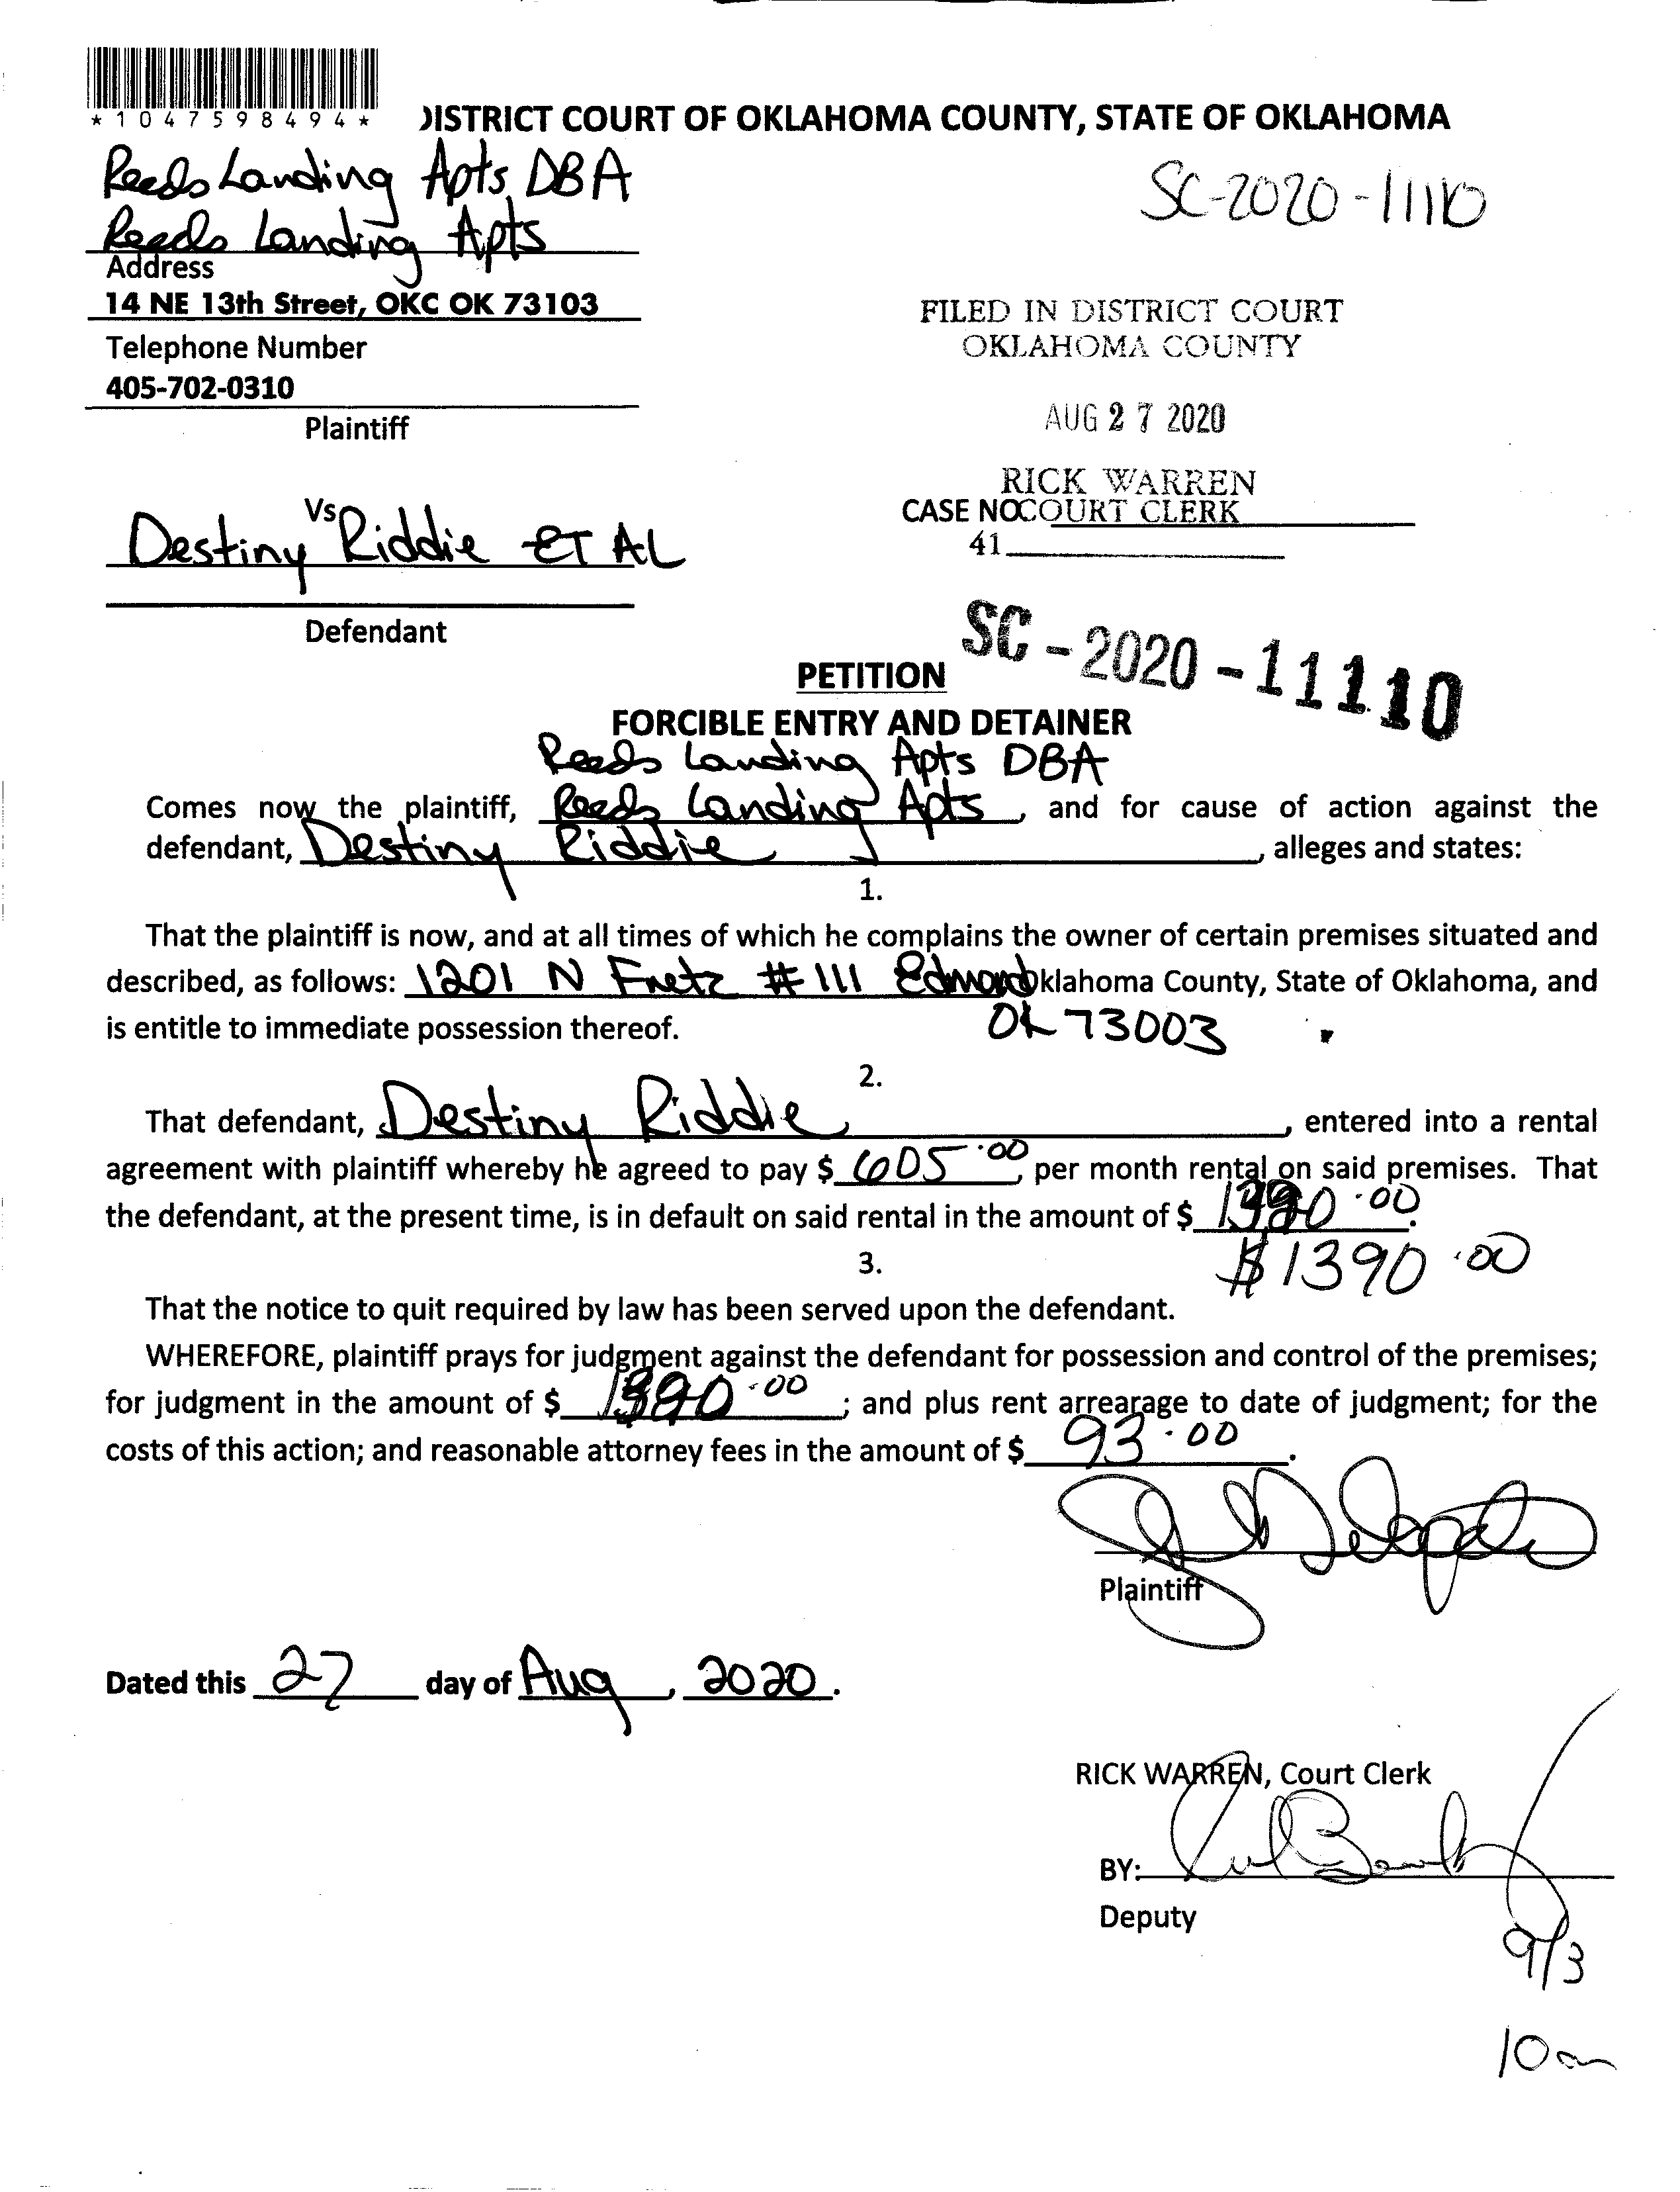 *1047598494*
DISTRICT COURT OF OKLAHOMA COUNTY, STATE OF OKLAHOMA
Reeds Landing Apts DBA
Reeds Landing Apts
SC-2020-11110
Address
14 NE 13th Street, OKC OK 73103
Telephone Number
405-702-0310
Plaintiff
FILED IN DISTRICT COURT
OKLAHOMA COUNTY
AUG 27 2020
RICK WARREN
COURT CLERK
CASE NO
41
Vs
Destiny Riddie ET AL
Defendant
SC-2020-11110
PETITION
FORCIBLE ENTRY AND DETAINER
Reeds Landing Apts DBA
Comes now the plaintiff, Reeds Landing Apts, and for cause of action against the
defendant, Destiny Riddie, alleges and states:
1.
That the plaintiff is now, and at all times of which he complains the owner of certain premises situated and
described, as follows: 1201 N Fretz #111 Edmond Oklahoma County, State of Oklahoma, and
is entitle to immediate possession thereof. OK 73003
2.
That defendant, Destiny Riddie, entered into a rental
agreement with plaintiff whereby he agreed to pay $ 605.00, per month rental on said premises. That
the defendant, at the present time, is in default on said rental in the amount of $ 1390.00.
$1390.00
3.
That the notice to quit required by law has been served upon the defendant.
WHEREFORE, plaintiff prays for judgment against the defendant for possession and control of the premises;
for judgment in the amount of $ 1390.00; and plus rent arrearage to date of judgment; for the
costs of this action; and reasonable attorney fees in the amount of $ 93.00.
Plaintiff
Dated this 27 day of Aug, 2020.
RICK WARREN, Court Clerk
BY:
Deputy
9/3
10am